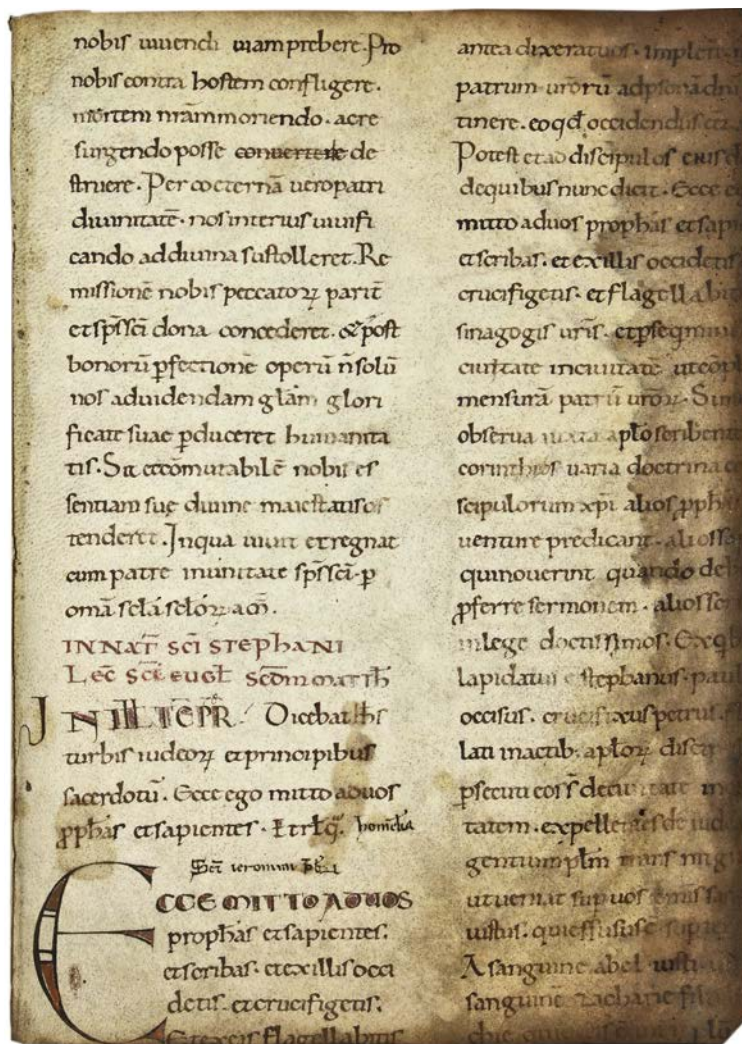 nobis uiuendi uiam prebere. Pro
nobis contra hostem confligere.
mortem nr̄am moriendo. ac re
surgendo posse conuertere de
struere. Per coeternā uero patri
diuinitatē. nos interius uiuifi
cando ad diuina sustolleret. Re
missionē nobis peccatoꝝ parit̄
et sp̄s sc̄i dona concederet. & post
bonorū ꝑfectionē operū n̄ solū
nos ad uidendam gl̄am glori
ficate suae ꝑduceret humanita
tis. Sed et incōmutabilē nobis es
sentiam suę diuinę maiestatis os
tenderet. In qua uiuit et regnat
cum patre in unitate sp̄s sc̄i. ꝑ
om̄a sc̄la sc̄loꝝ am̄.
IN NAT̄ SC̄I STEPHANI
Lec̄ sc̄i eugl̄ sc̄dm matth̄
IN ILL̄ TĒPR̄. Dicebat ih̄s
turbis iudeoꝝ et principibus
sacerdotū. Ecce ego mitto ad uos
ꝓph̄as et sapientes. Et rl̄q̄. homelia
ECCE MITTO AD UOS
proph̄as et sapientes.
et scribas. et ex illis occi
detis. et crucifigetis.
Et ex eis flagellabitis
antea dixerat uos. implete
patrum urōrū ad ꝑsonā dn̄i
tinere. eo qd̄ occidendus
Potest et ad discipulos eius
de quibus nunc dicit. Ecce
mitto ad uos proph̄as et
et scribas. et ex illis occidetis
crucifigetis. et flagellabit
sinagogis ur̄is. et ꝑseqmini
ciuitate in ciuitatē ut
mensurā patrū uroꝝ.
obserua iuxta apl̄o scribente
corinthios uaria doctrina
scipulorum xp̄i alios ꝓph̄as
uenture predicant. alios
qui nouerint quando
ꝓferre sermonem. alios
in lege doctissimos.
lapidatus ē stephanus.
occisus. crucifixus petrus.
lati in actib. apl̄oꝝ
ꝑsecuti eos de ciuitate in
tatem. expellentes de
gentium
ut ueniat sup uos omis
iustus. qui effusus ē
A sanguine abel iusti
sanguinē zacharie